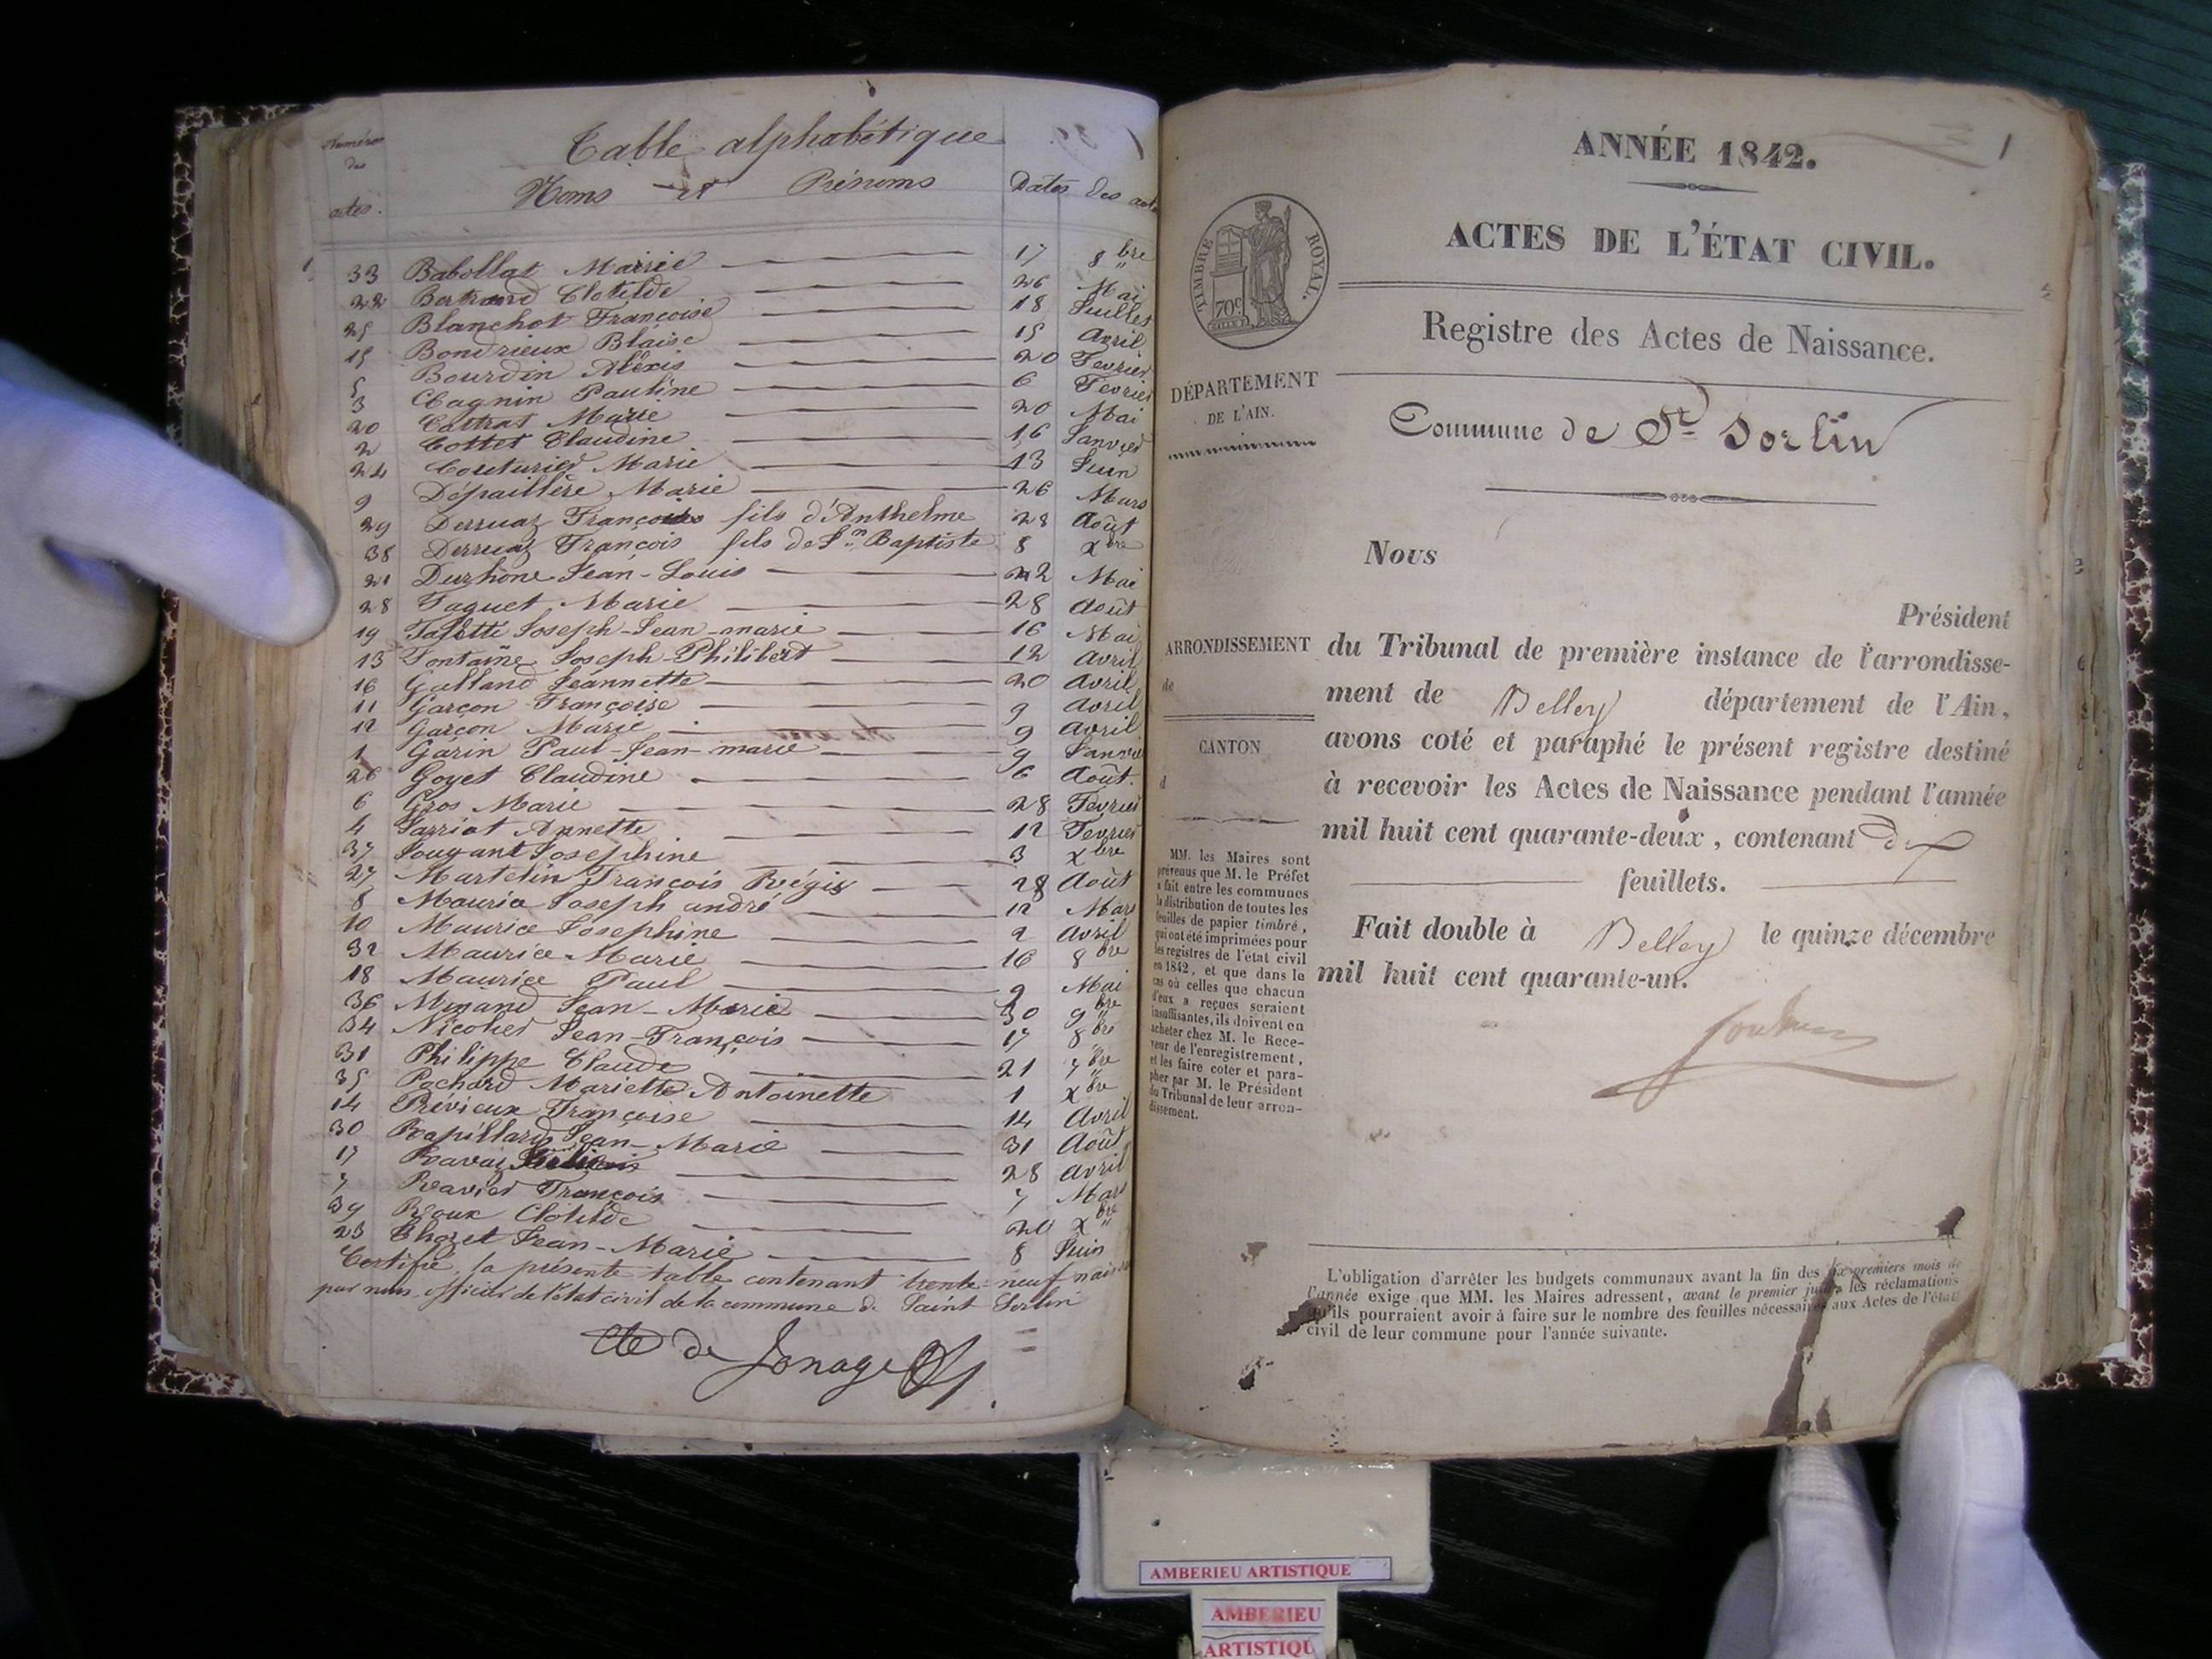 Numéros
des
actes.
Table alphabétique
Noms et Prénoms
Dates des
33 Babollat Marie 17 8bre
22 Bertrand Clotilde 26 Mai
25 Blanchot Françoise 18 Juillet
15 Bondrieux Blaise 15 Avril
5 Bourdin Aléxis 20 Fevrier
3 Chagnin Pauline 6 Fevrier
20 Cottrat Marie 20 Mai
2 Cottet Claudine 16 Janvier
24 Couturier Marie 13 Juin
9 Dépaillère Marie 26 Mars
29 Derruaz François fils d'Anthelme 28 Août
38 Derruaz François fils de Jn Baptiste 8 Xbre
21 Durhône Jean-Louis 22 Mai
28 Faquet Marie 28 Août
19 Joseph-Jean-marie 16 Mai
13 Fontaine Joseph-Philibert 12 Avril
16 Galland Jeannette 20 Avril
11 Garçon Françoise 9 Avril
12 Garçon Marie 9 Avril
1 Garin Paul-Jean-marie 9 Janvie
26 Goyet Claudine 6 Août.
6 Gros Marie 28 Fevrier
4 Jarriot Annette 12 Fevrier
37 Jouyant Josephine 3 Xbre
27 Martelin François Régis 28 Août
8 Maurice Joseph andré 12 Mars
10 Maurice Josephine 2 Avril
32 Maurice Marie 16 8bre
18 Maurice Paul 9 Mai
36 Jean-Marie 30 9bre
34 Nicolier Jean-François 17 8bre
31 Philippe Claude 21 7bre
35 Pochard Mariette Antoinette 1 Xbre
14 Prévieux Françoise 14 Avril
30 Rapillard Jean-Marie 31 Août
17 Ravaz 28 avril
7 Ravier François 7 Mars
39 Roux Clotilde 20 Xbre
23 Thozet Jean-Marie 8 Juin
Certifié la présente table contenant trente-neuf
par nous officier de l'état civil de la commune de Saint Sorlin
Cte de Jonage
1
ANNÉE 1842.
ACTES DE L'ÉTAT CIVIL.
TIMBRE ROYAL.
70c
Registre des Actes de Naissance.
DÉPARTEMENT
DE L'AIN.
Commune de St Sorlin
Nous
Président
ARRONDISSEMENT
de
du Tribunal de première instance de l'arrondisse-
ment de Belley département de l'Ain,
CANTON
d
avons coté et paraphé le présent registre destiné
à recevoir les Actes de Naissance pendant l'année
mil huit cent quarante-deux, contenant dix
feuillets.
Fait double à Belley le quinze décembre
mil huit cent quarante-un.
MM. les Maires sont
prévenus que M. le Préfet
a fait entre les communes
la distribution de toutes les
feuilles de papier timbré,
qui ont été imprimées pour
les registres de l'état civil
en 1842, et que dans le
cas où celles que chacun
d'eux a reçues seraient
insuffisantes, ils doivent en
acheter chez M. le Rece-
veur de l'enregistrement,
et les faire coter et para-
pher par M. le Président
du Tribunal de leur arron-
dissement.
L'obligation d'arrêter les budgets communaux avant la fin des six premiers mois de
l'année exige que MM. les Maires adressent, avant le premier juin, les réclamations
qu'ils pourraient avoir à faire sur le nombre des feuilles nécessaires aux Actes de l'état
civil de leur commune pour l'année suivante.
AMBERIEU ARTISTIQUE
AMBERIEU
ARTISTIQU